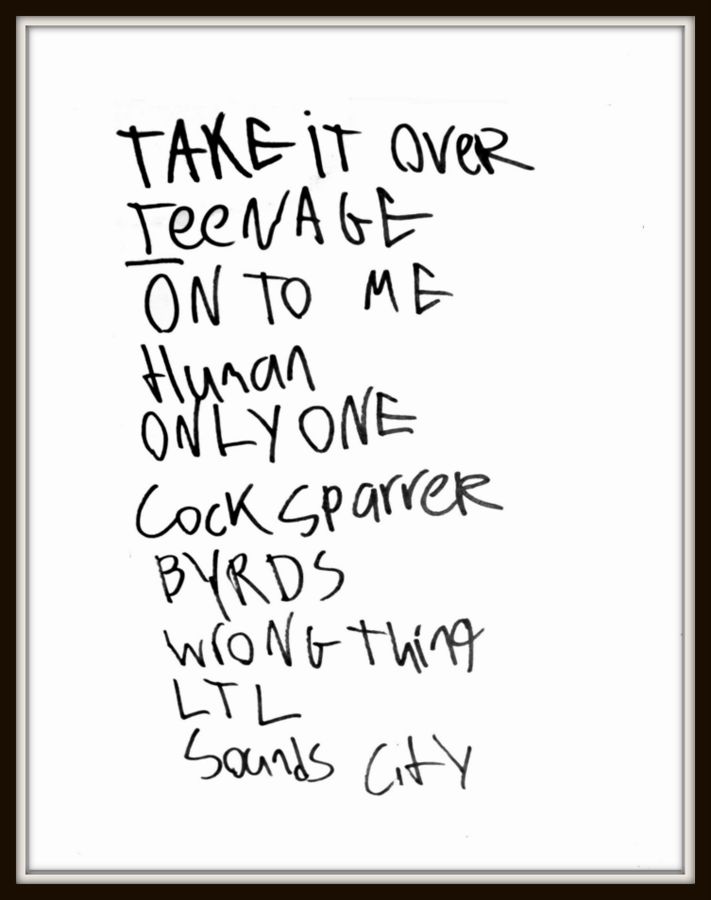 TAKE iT OVeR
TeeNAGE
ON TO ME
Human
ONLY ONE
Cock SparreR
BYRDS
WrONG Thing
LTL
Sounds City